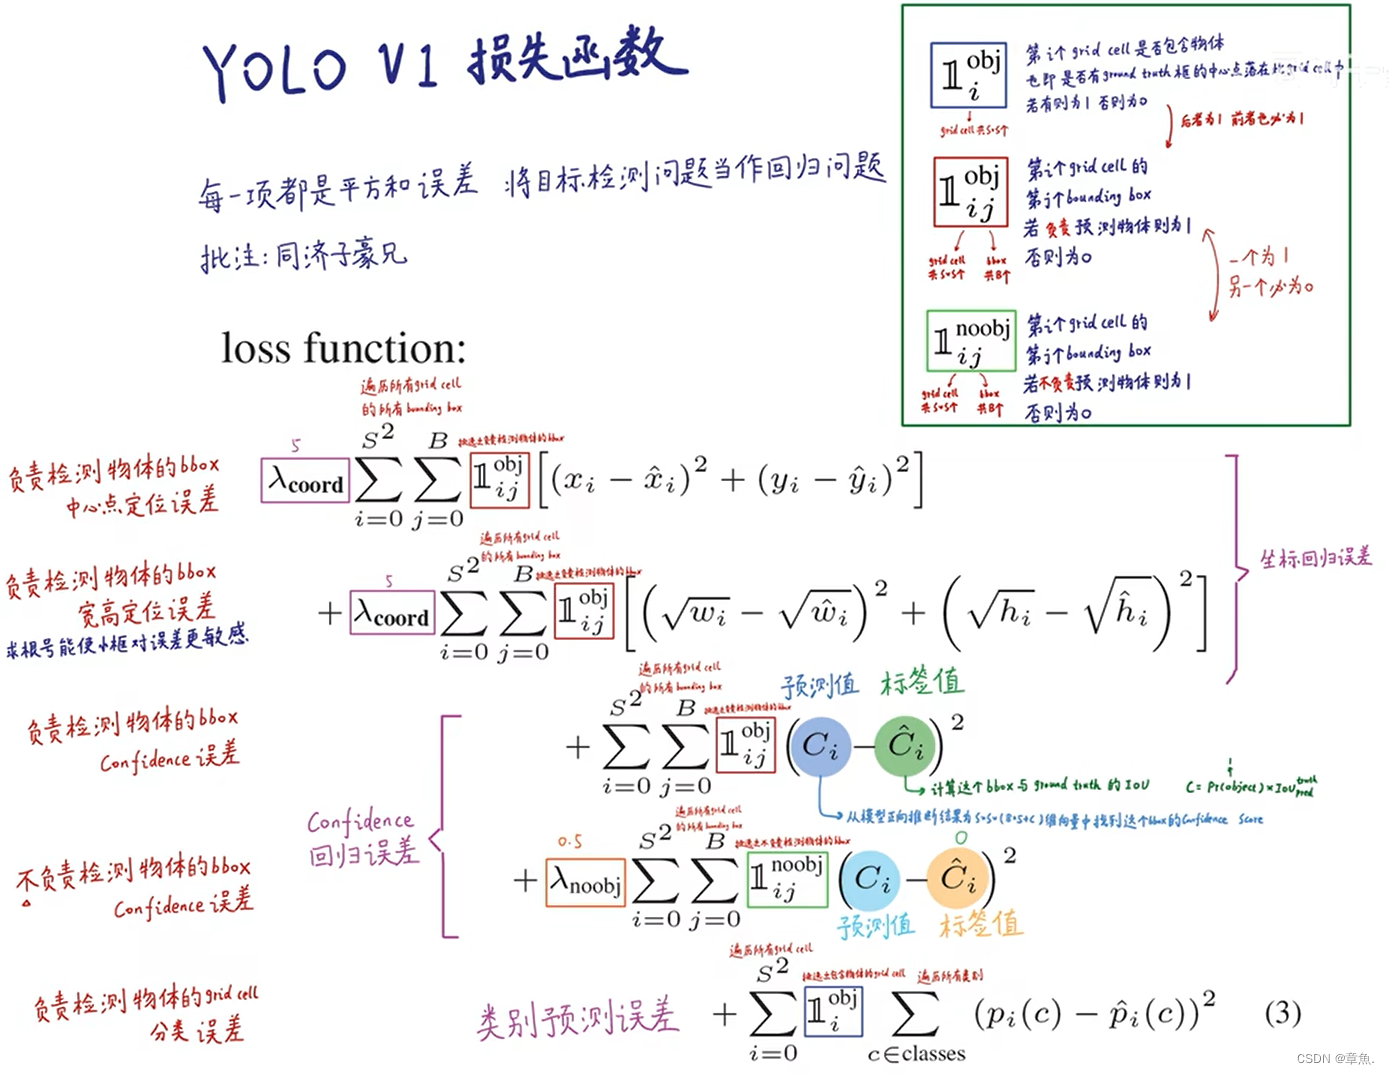 YOLO V1 损失函数
每一项都是平方和误差 将目标检测问题当作回归问题
批注:同济子豪兄
𝟙 obj i
grid cell 共S*S个
第i个grid cell是否包含物体
也即是否有ground truth框的中心点落在此grid cell中
若有则为1 否则为0
后者为1 前者也必为1
𝟙 obj ij
grid cell 共S*S个
bbox 共B个
第i个grid cell的
第j个bounding box
若负责预测物体则为1
否则为0
一个为1
另一个必为0
𝟙 noobj ij
grid cell 共S*S个
bbox 共B个
第i个grid cell的
第j个bounding box
若不负责预测物体则为1
否则为0
loss function:
遍历所有grid cell
的所有bounding box
挑选出负责检测物体的bbox
负责检测物体的bbox
中心点定位误差
5
λcoord ∑_{i=0}^{S²} ∑_{j=0}^{B} 𝟙_{ij}^{obj} [(x_i − x̂_i)² + (y_i − ŷ_i)²]
遍历所有grid cell
的所有bounding box
挑选出负责检测物体的bbox
负责检测物体的bbox
宽高定位误差
求根号能使小框对误差更敏感
5
+ λcoord ∑_{i=0}^{S²} ∑_{j=0}^{B} 𝟙_{ij}^{obj} [(√w_i − √ŵ_i)² + (√h_i − √ĥ_i)²]
坐标回归误差
遍历所有grid cell
的所有bounding box
挑选出负责检测物体的bbox
预测值 标签值
负责检测物体的bbox
Confidence 误差
+ ∑_{i=0}^{S²} ∑_{j=0}^{B} 𝟙_{ij}^{obj} (C_i − Ĉ_i)²
计算这个bbox与ground truth的IOU
C = Pr(object) * IOU truth pred
从模型正向推断结果为S*S*(B*5+C)维向量中找到这个bbox的Confidence Score
Confidence
回归误差
遍历所有grid cell
的所有bounding box
挑选出不负责检测物体的bbox
不负责检测物体的bbox
Confidence 误差
0.5
0
+ λnoobj ∑_{i=0}^{S²} ∑_{j=0}^{B} 𝟙_{ij}^{noobj} (C_i − Ĉ_i)²
预测值 标签值
遍历所有grid cell
挑选出包含物体的grid cell
遍历所有类别
负责检测物体的grid cell
分类误差
类别预测误差
+ ∑_{i=0}^{S²} 𝟙_i^{obj} ∑_{c∈classes} (p_i(c) − p̂_i(c))² (3)
CSDN @章魚.